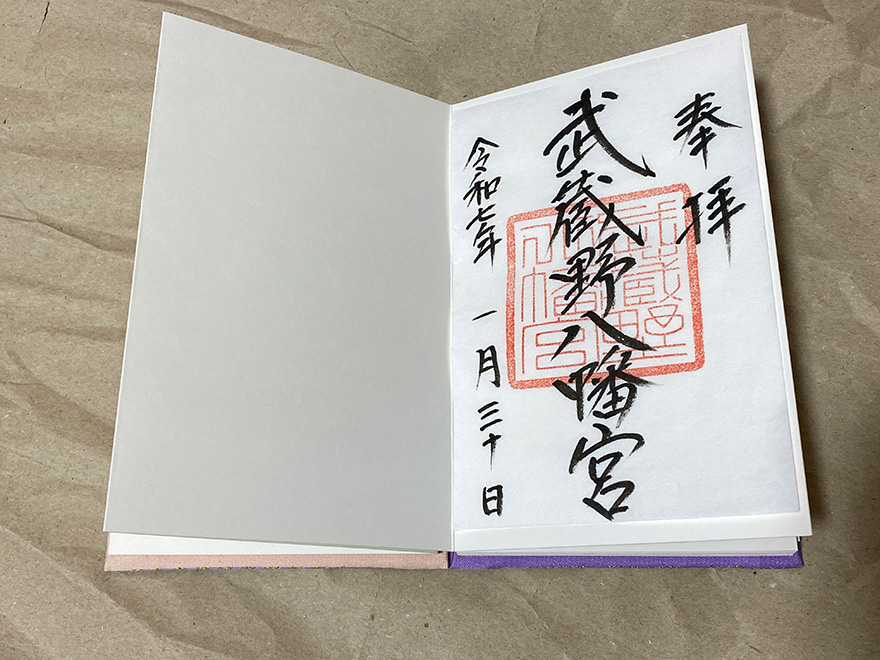 奉拝
武蔵野八幡宮
武蔵野八幡宮
令和七年 一月三十日